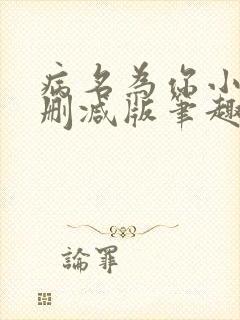 病名為你小
删减版笔趣
論罪